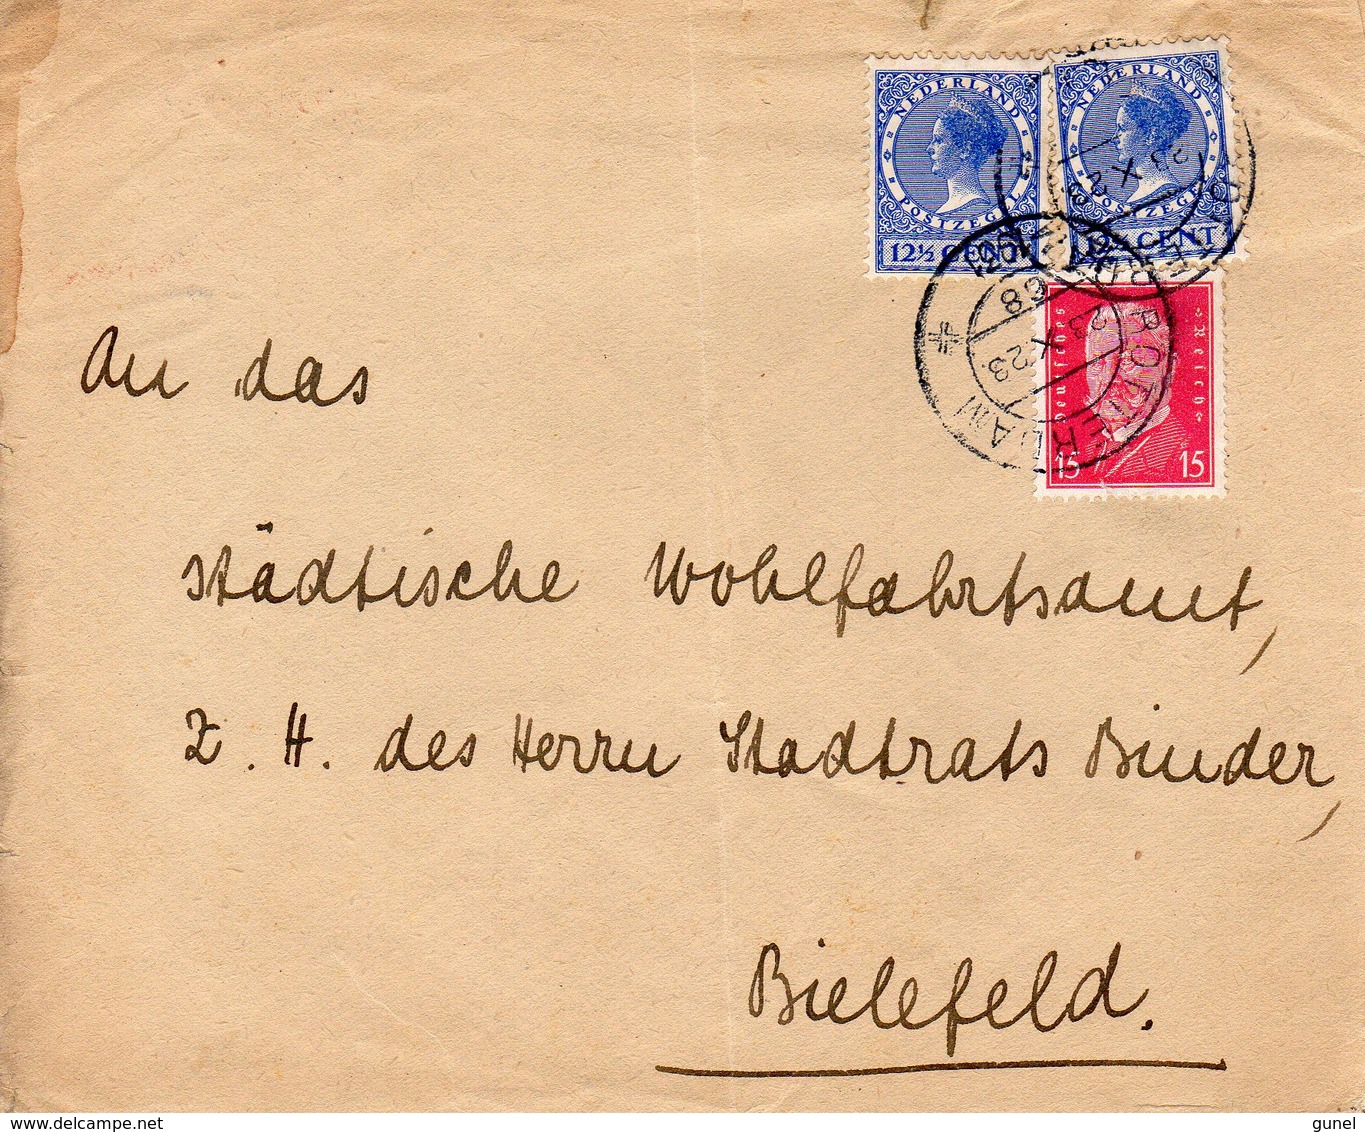 NEDERLAND
POSTZEGEL
12½ CENT
NEDERLAND
POSTZEGEL
12½ CENT
ROTTERDAM
23 X 23
68
Deutsches Reich
15 15
An das
städtische Wohlfahrtsamt,
z. H. des Herrn Stadtrats Binder,
Bielefeld.
delcampe.net
gunel